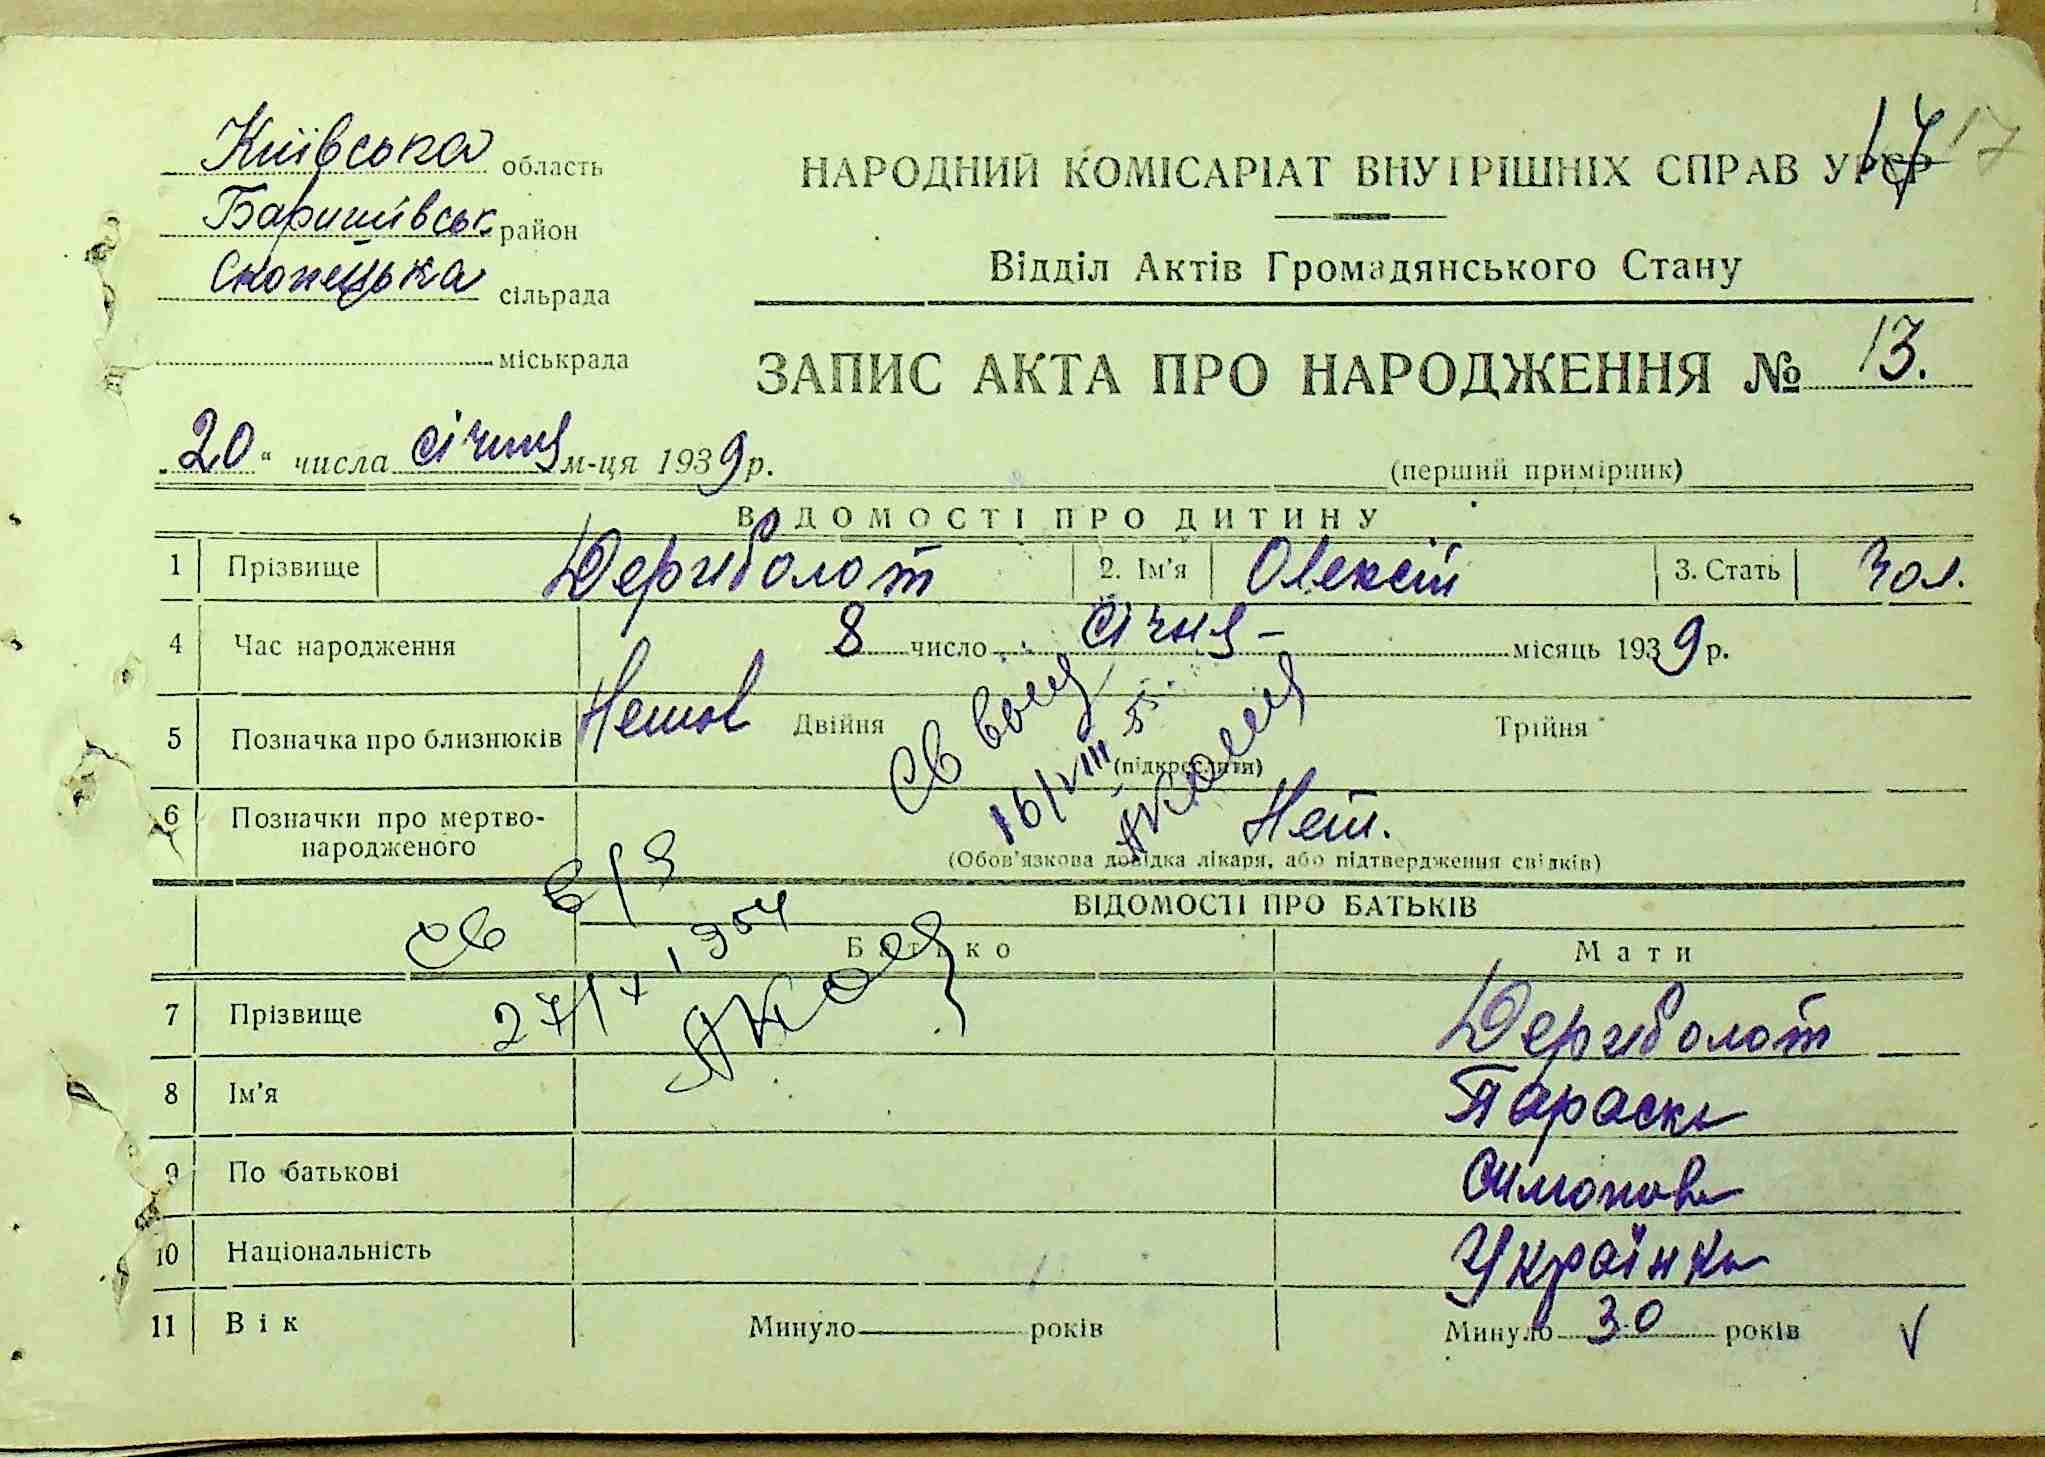 Київська область
Баришівськ. район
Скопецька сільрада
міськрада
17 17
НАРОДНИЙ КОМІСАРІАТ ВНУТРІШНІХ СПРАВ УРСР
Відділ Актів Громадянського Стану
ЗАПИС АКТА ПРО НАРОДЖЕННЯ № 13.
„20“ числа січня м-ця 1939 р.
(перший примірник)
ВІДОМОСТІ ПРО ДИТИНУ
1 Прізвище Дериболот 2. Ім'я Олексій 3. Стать Чол.
4 Час народження 8 число січня – місяць 1939 р.
5 Позначка про близнюків Двійня Трійня
(підкреслити)
Св
16/VIII 55
6 Позначки про мертвонародженого Нет.
(Обов'язкова довідка лікаря, або підтвердження свідків)
Св
27/X 1954
ВІДОМОСТІ ПРО БАТЬКІВ
Батько Мати
7 Прізвище Дериболот
8 Ім'я Параска
9 По батькові Симонова
10 Національність Українка
11 Вік Минуло років Минуло 30 років